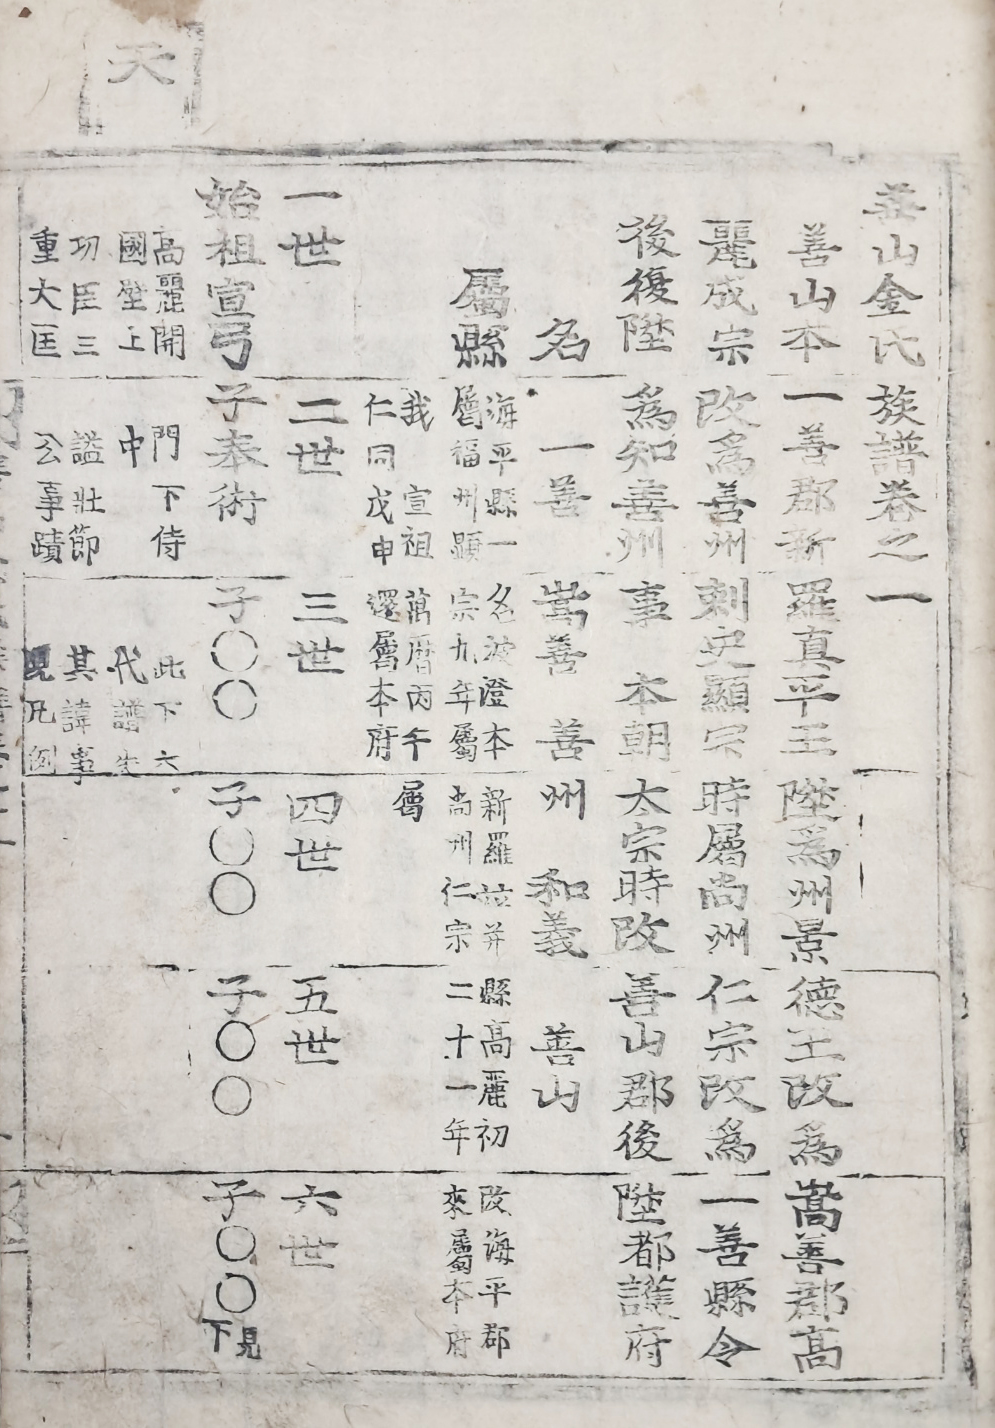 天
善山金氏族譜卷之一
善山本一善郡新羅真平王陞爲州景德王改爲嵩善郡高
麗成宗改爲善州刺史顯宗時屬尚州仁宗改爲一善縣令
後復陞爲知善州事 本朝太宗時改善山郡後陞都護府
名 一善 嵩善 善州 和義 善山
屬縣
海平縣一名波澄本新羅竝井縣高麗初改海平郡
屬福州顯宗九年屬尚州仁宗二十一年來屬本府
我 宣祖萬曆丙午屬
仁同戊申還屬本府
一世 二世 三世 四世 五世 六世
始祖宣弓 子奉術 子〇〇 子〇〇 子〇〇 子〇〇
見下
高麗開
國壁上
功臣三
重大匡
門下侍
中
謚壯節
公事蹟
此下六
代譜失
其諱事
現凡例